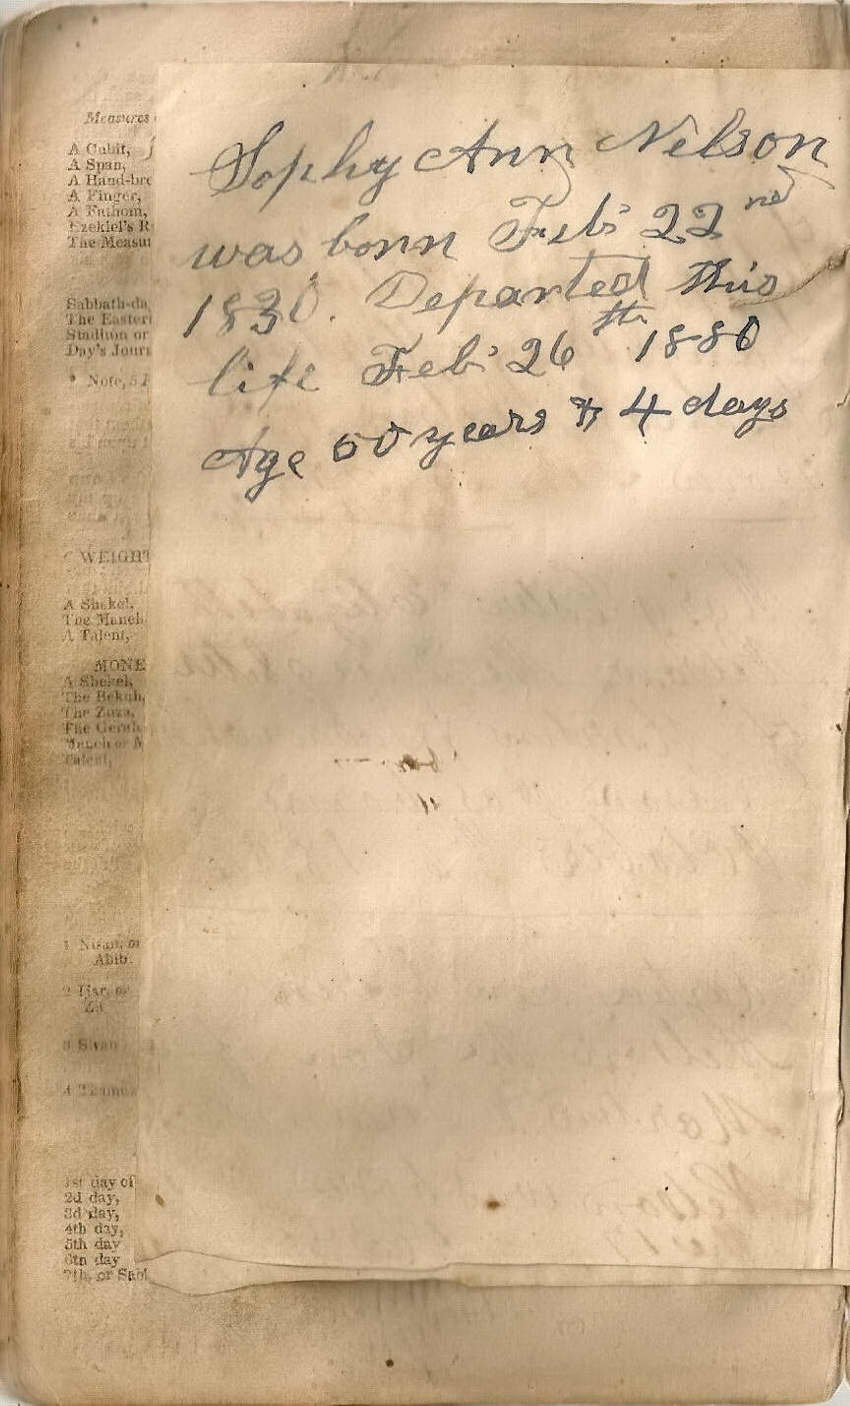 Measures
A Cubit,
A Span,
A Hand-bre
A Finger,
A Fathom,
Ezekiel's R
The Measu
Sabbath-da
The Easter
Stadium or
Day's Journ
* Note, 5
Sophy Ann Nelson
was born Feb: 22nd
1830. Departed this
life Feb: 26th 1880
Age 50 years & 4 days
WEIGHT
A Shekel,
The Maneh
A Talent,
MONE
A Shekel,
The Bekah,
The Zuza,
The Gerah
Maneh or M
Talent,
1 Nisan, or
Abib.
2 Ijar, or
Zif
3 Sivan
4 Tammu
1st day of
2d day,
3d day,
4th day,
5th day
6th day
7th, or Sab